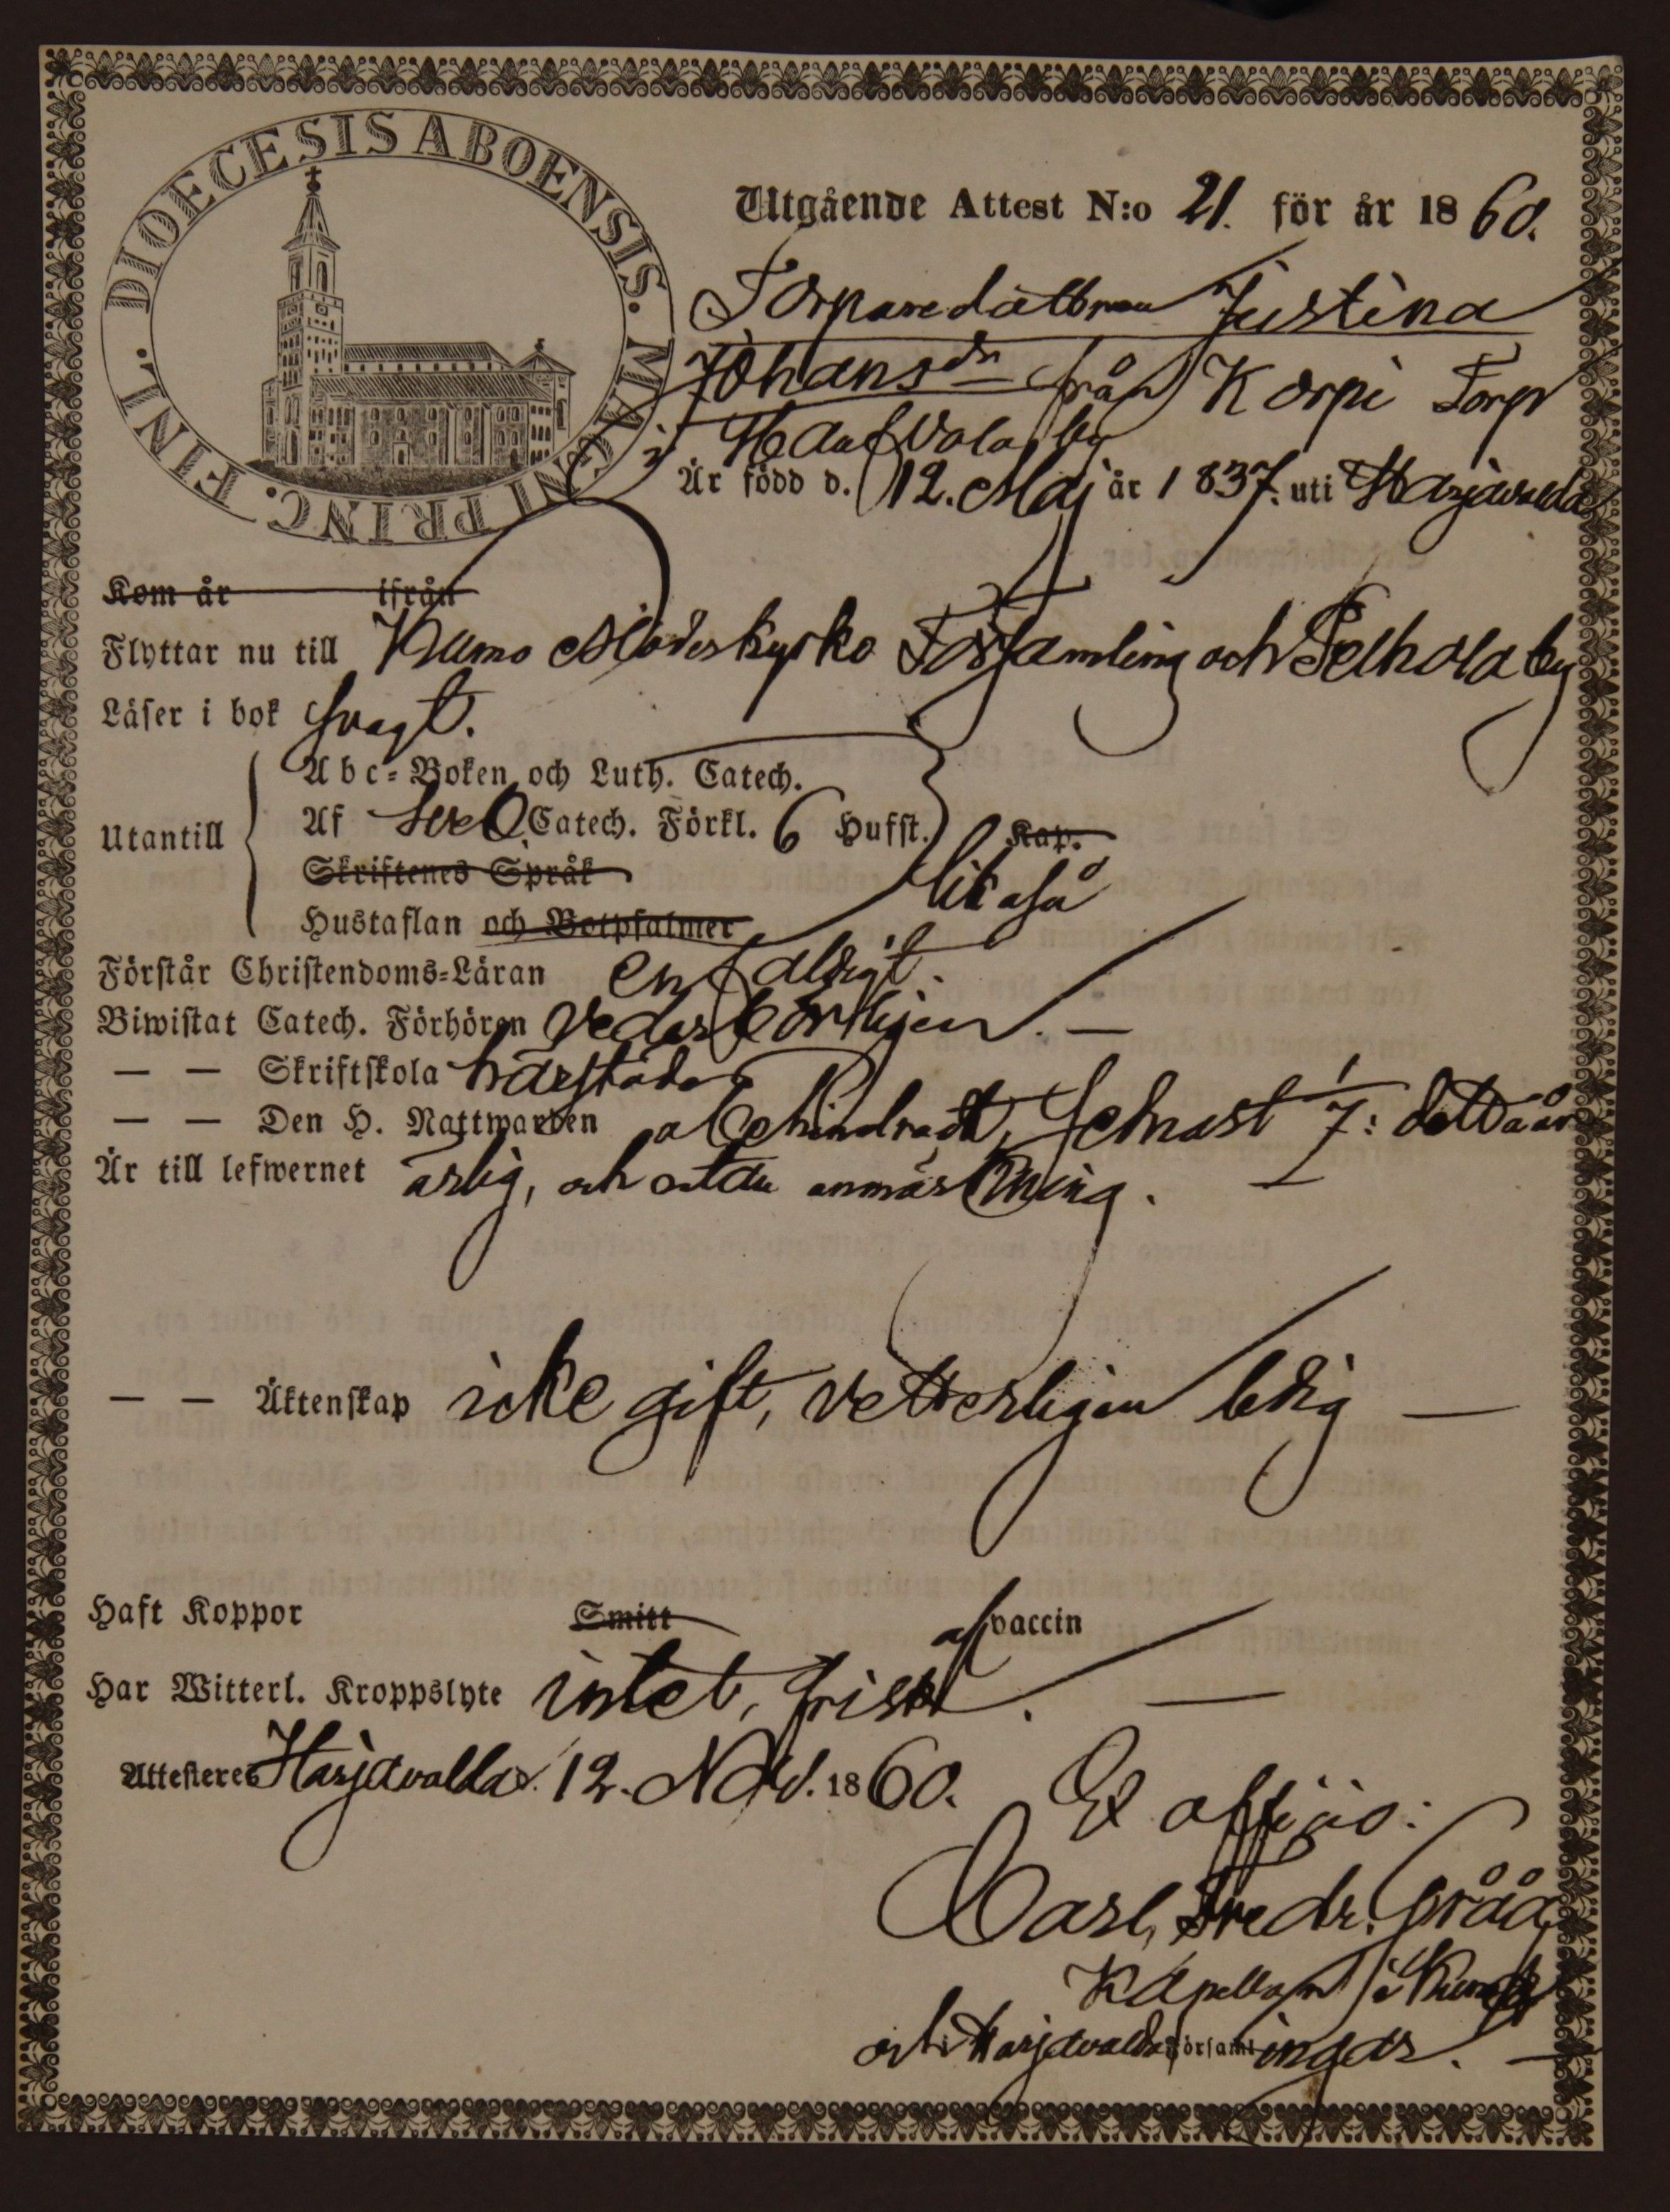 DIOECESIS ABOENSIS. MAGNI PRINC. FINL.
Utgående Attest N:o 21. för år 1860.
Torparedottren Justina
Johansdr från Korpi Torp
i Hauf by
Är född d. 12. Maj år 1837. uti Harjavalda
Kom år ifrån
Flyttar nu till Kumo Moderkyrko Församling och by
Läser i bok svagt.
Utantill
Abc-Boken och Luth. Catech.
Af Sveb. Catech. Förkl. 6 Hufst. Kap.
Skriftenes Språk
likaså
Hustaflan och Botpsalmer
Förstår Christendoms-Läran enfaldigt.
Biwistat Catech. Förhören vederbörligen. —
— — Skriftskola härstädes
— — Den H. Nattwarden obehindradt, sednast 1/7: detta år
Är till lefwernet ärlig, och utan anmärkning. —
— — Äktenskap icke gift, vetterligen ledig —
Haft Koppor Smitt af vaccin
Har Witterl. Kroppslyte intet, frisk. —
Attesteres Harjavalda. 12. Nov. 1860. Ex officio:
Carl Fredr. Gråå
Kapellan i Kumo
och i Harjavalda Församlingar. —